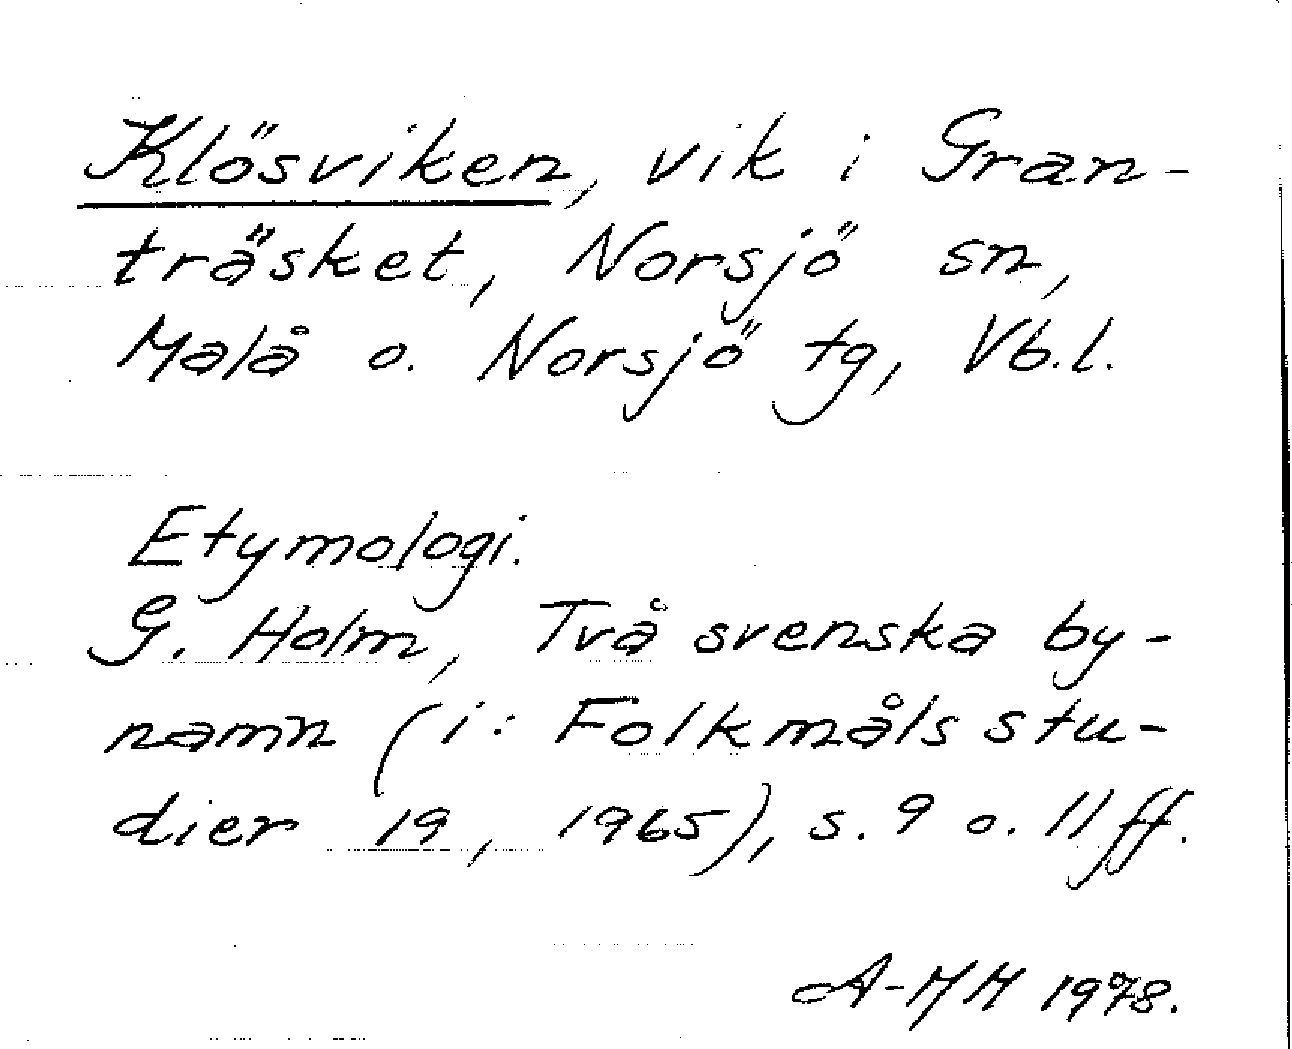 Klösviken, vik i Gran-
träsket, Norsjö sn,
Malå o. Norsjö tg, Vb.l.
Etymologi.
G. Holm, Två svenska by-
namn (i: Folkmålsstu-
dier 19, 1965), s. 9 o. 11 ff.
A-MM 1978.